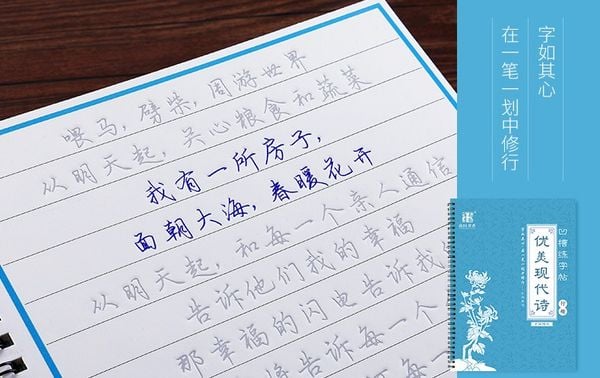 喂马，劈柴，周游世界
从明天起，关心粮食和蔬菜
我有一所房子，
面朝大海，春暖花开
从明天起，和每一个亲人通信
告诉他们我的幸福
那幸福的闪电告诉我的
将告诉每一个
字如其心
在一笔一划中修行
凹槽练字帖
优美现代诗